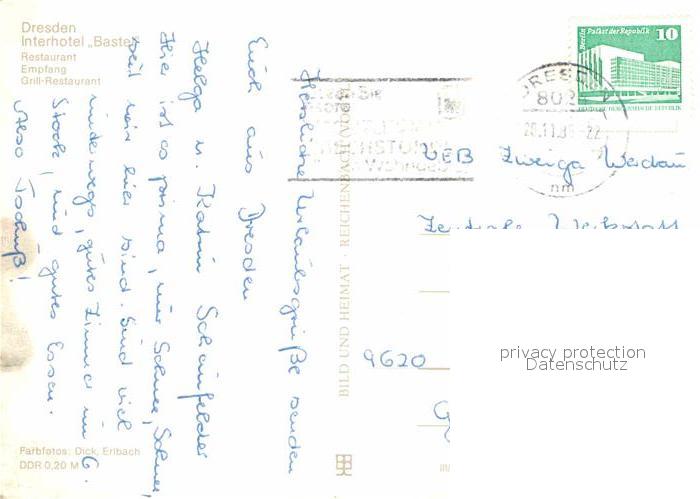 Dresden
Interhotel „Bastei"
Restaurant
Empfang
Grill-Restaurant
Herzliche Urlaubsgrüße senden
Euch aus Dresden
Helga u. Katrin Scheinfelder
Hier ist es prima, nur Schnee, Schnee,
seit wir hier sind. Sind viel
unterwegs, gutes Zimmer im 6.
Stock, und gutes Essen.
Also Tschüß!
Farbfotos: Dick, Erlbach
DDR 0,20 M
BILD UND HEIMAT · REICHENBACH (VOGTL
III/
Berlin Palast der Republik
10
DEUTSCHE DEMOKRATISCHE REPUBLIK
DRESDEN
802
nm
VEB Zweiga Werdau
Zentrale Werkstatt
9620
privacy protection
Datenschutz